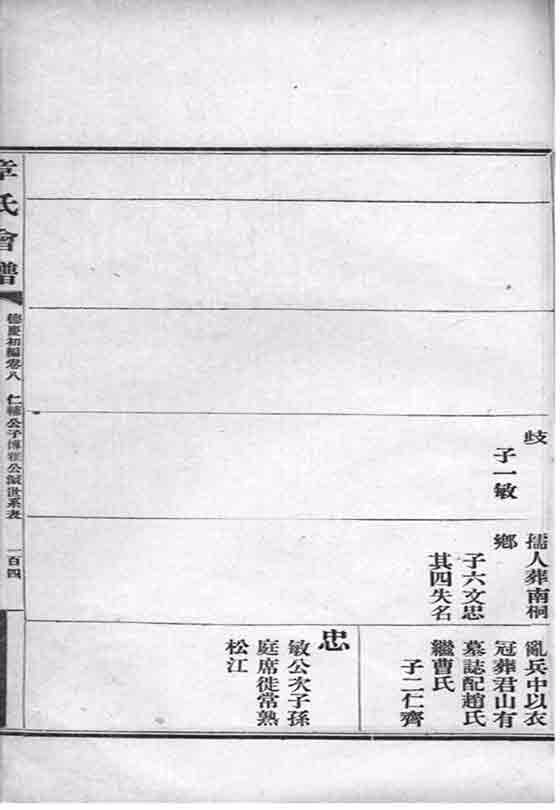 歧
子一敏
孺人葬南桐
鄉
子六文思
其四失名
亂兵中以衣
冠葬君山有
墓誌配趙氏
繼曹氏
子二仁齊
忠
敏公次子孫
庭席徙常熟
松江
章氏會譜
德慶初編卷八
公子
公派世系表
一百四